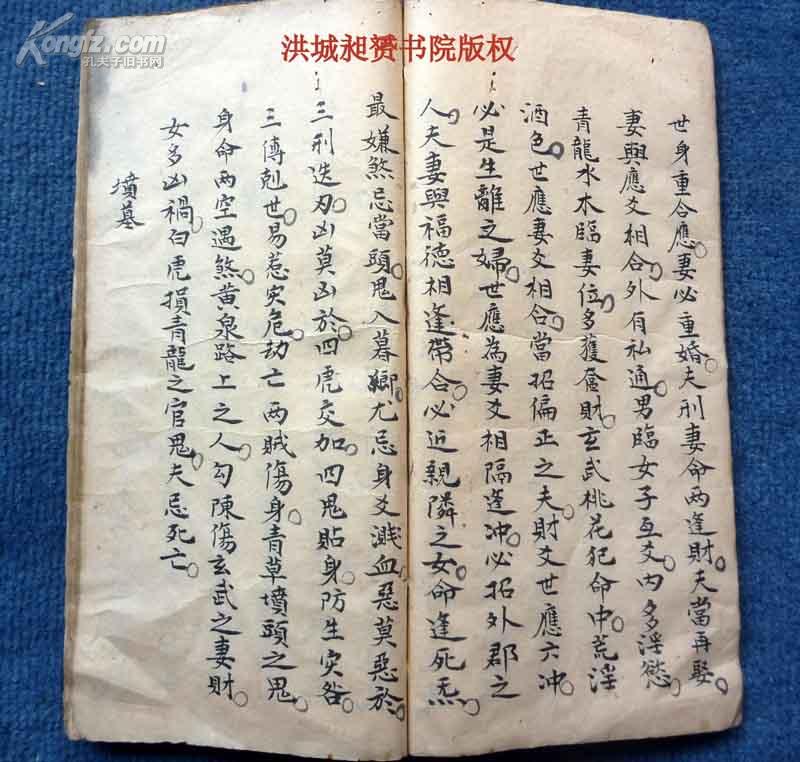 Kongfz.com
孔夫子旧书网
洪城昶赟书院版权
世身重合應。妻必重婚夫刑妻命兩逢財。夫當再娶
妻與應爻相合。外有私通。男臨女子互爻。内多淫慾。
青龍水木臨妻位。多獲奩財。玄武桃花犯命中。荒淫
酒色。世應妻爻相合。當招偏正之夫。財爻世應六冲。
必是生離之婦。世應為妻爻相隔逢冲。必招外郡之
人。夫妻與福德相逢帶合。必近親隣之女。命逢死炁。
最嫌煞忌當頭。鬼入墓鄉。尤忌身爻濺血。惡莫惡於
三刑迭刃。凶莫凶於四虎交加。四鬼貼身。防生灾咎。
三傳剋世。易惹灾危。劫亡兩賊傷身。青草墳頭之鬼。
身命兩空遇煞。黄泉路上之人。勾陳傷玄武之妻財。
女多凶禍。白虎損青龍之官鬼。夫忌死亡。
墳墓